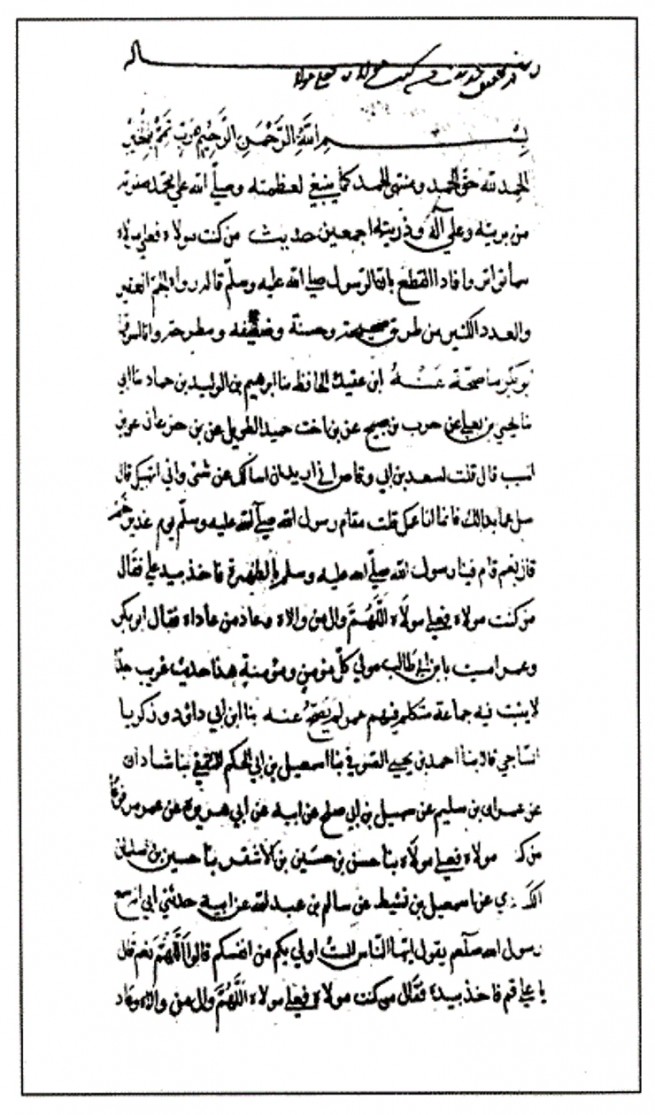 رسالة
من كنت مولاه فعلي مولاه
بسم الله الرحمن الرحيم
الحمد لله حق الحمد ومنتهى الحمد كما ينبغي لعظمته وصلى الله على محمد صفوته
من بريته وعلى آله وذريته اجمعين حديث من كنت مولاه فعلي مولاه
القطع بان الرسول صلى الله عليه وسلم قاله رواه
والعدد الكثير من طرق صحيحة وحسنة وضعيفه ومطرحة
صحة عنه ابن عقدة الحافظ نا ابرهيم بن الوليد بن حماد نا ابي
نا يحيى بن يعلى عن حرب بن صبيح عن بن اخت حميد الطويل عن بن جدعان عن بن
المسيب قال قلت لسعد بن ابي وقاص اني اريد ان اسالك عن شئ واني اتهيبك قال
سل عما بدا لك فانما انا عمك قلت مقام رسول الله صلى الله عليه وسلم يوم غدير خم
قال نعم قام فينا رسول الله صلى الله عليه وسلم بالظهيرة فاخذ بيد علي فقال
من كنت مولاه فعلي مولاه اللهم وال من والاه وعاد من عاداه فقال ابو بكر
وعمر امسيت يا بن ابي طالب مولى كل مؤمن ومؤمنة هذا حديث غريب جدا
فيه جماعة متكلم فيهم عمر لم يصح عنه نا ابن ابي داؤد وزكريا
الساجي قالا نا احمد بن يحيى الصوفي نا اسمعيل بن ابي الحكم الثقفي نا شاذان
عن عمران بن سليم عن سهيل بن ابي صالح عن ابيه عن ابي هريرة عن عمر مرفوعا
من كـ مولاه فعلي مولاه نا حسن بن حسين بن الاشقر نا حسين بن سليمان
عن اسمعيل بن نشيط عن سالم بن عبد الله عن ابيه حدثني ابي انه سمع
رسول الله صلعم يقول ايها الناس الست اولى بكم من انفسكم قالوا اللهم نعم قال
يا علي قم فاخذ بيده فقال من كنت مولاه فعلي مولاه اللهم وال من والاه وعاد